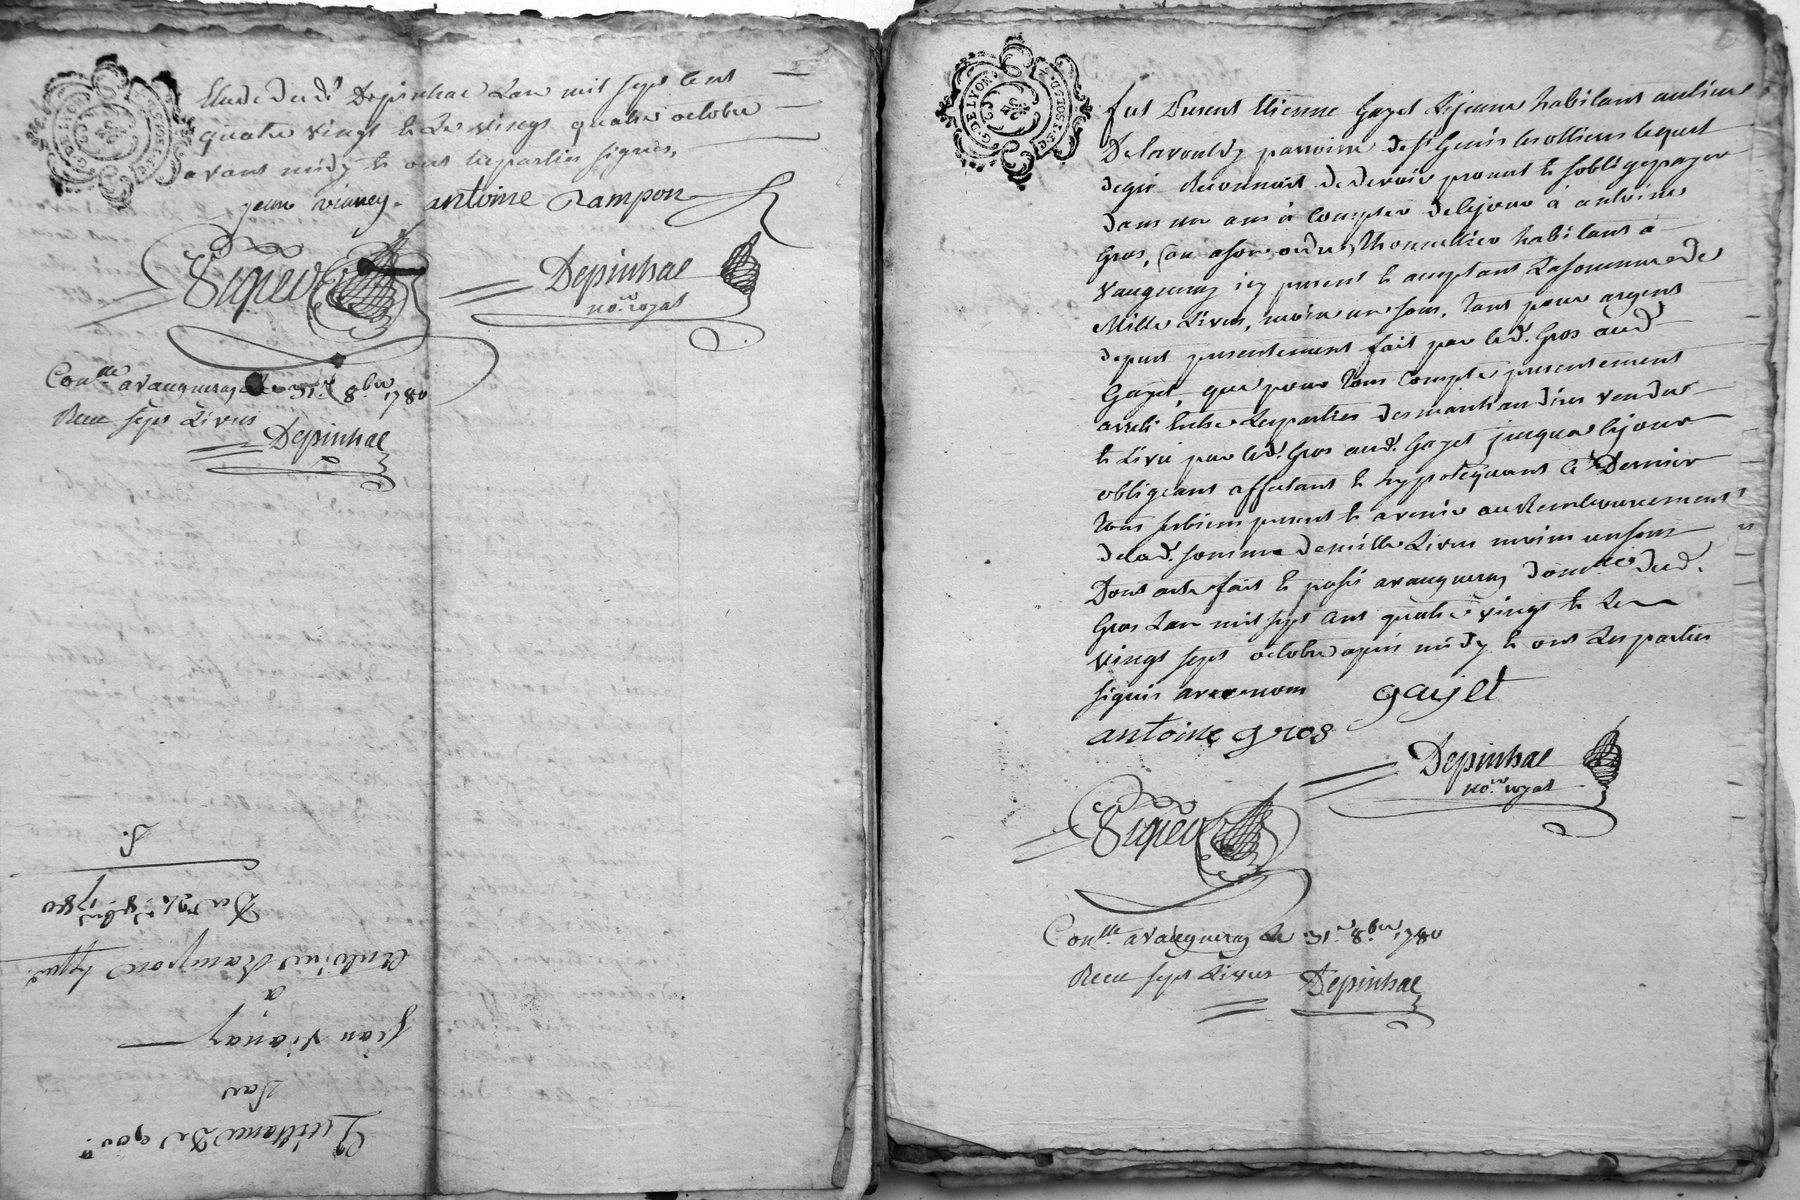 G. DE LYON
2 S. TOST. ET D.
Etude dud.t Depinhac L'an mil sept cent
quatre vingt & Le vingt quatre octobre
avant midy & ont Les parties signés,
jean vianey. antoine Rampon
Depinhac
no.re royal
Con.lle a vaugneray Le 31.e 8.bre 1780
Recu sept Livres
Depinhac
Du 24.e 8.bre 1780
antoine Rampon
a
jean vianay
Par
Quittance De 900.ll
G. DE LYON
2 S. TOST. ET D.
fut Présent Etienne Gayet Lejeune habitant au lieu
De Lavoulvy parroisse de S.t Genis les ollieres lequel
degré Reconnoit de devoir promet & s'oblige payer
dans un an à compter de Ce jour à antoine
Gros, (ou a son ordre) thonnellier habitant à
Vaugneray icy present & acceptant La somme de
Mille Livres, moins un sous, tant pour argent
de pret presentement fait par led. Gros aud.
Gayet, que pour tous compte presentement
arreté Entre Les parties des marchandises vendues
& Livré par led. Gros aud. Gayet jusques a ce jour
obligeant affectant & hypotéquant Ce Dernier
tous ses biens present & avenir au Remboursement
de lad. somme de mille Livres moins un sous
Dont acte fait & passé a vaugneray domicile dud.
Gros L'an mil sept cent quatre vingt & Le
vingt sept octobre aprés midy & ont Les parties
signés avec nous gayet
antoine gros
Depinhac
no.re royal
Con.lle a vaugneray Le 31.e 8.bre 1780
Recu sept Livres Depinhac